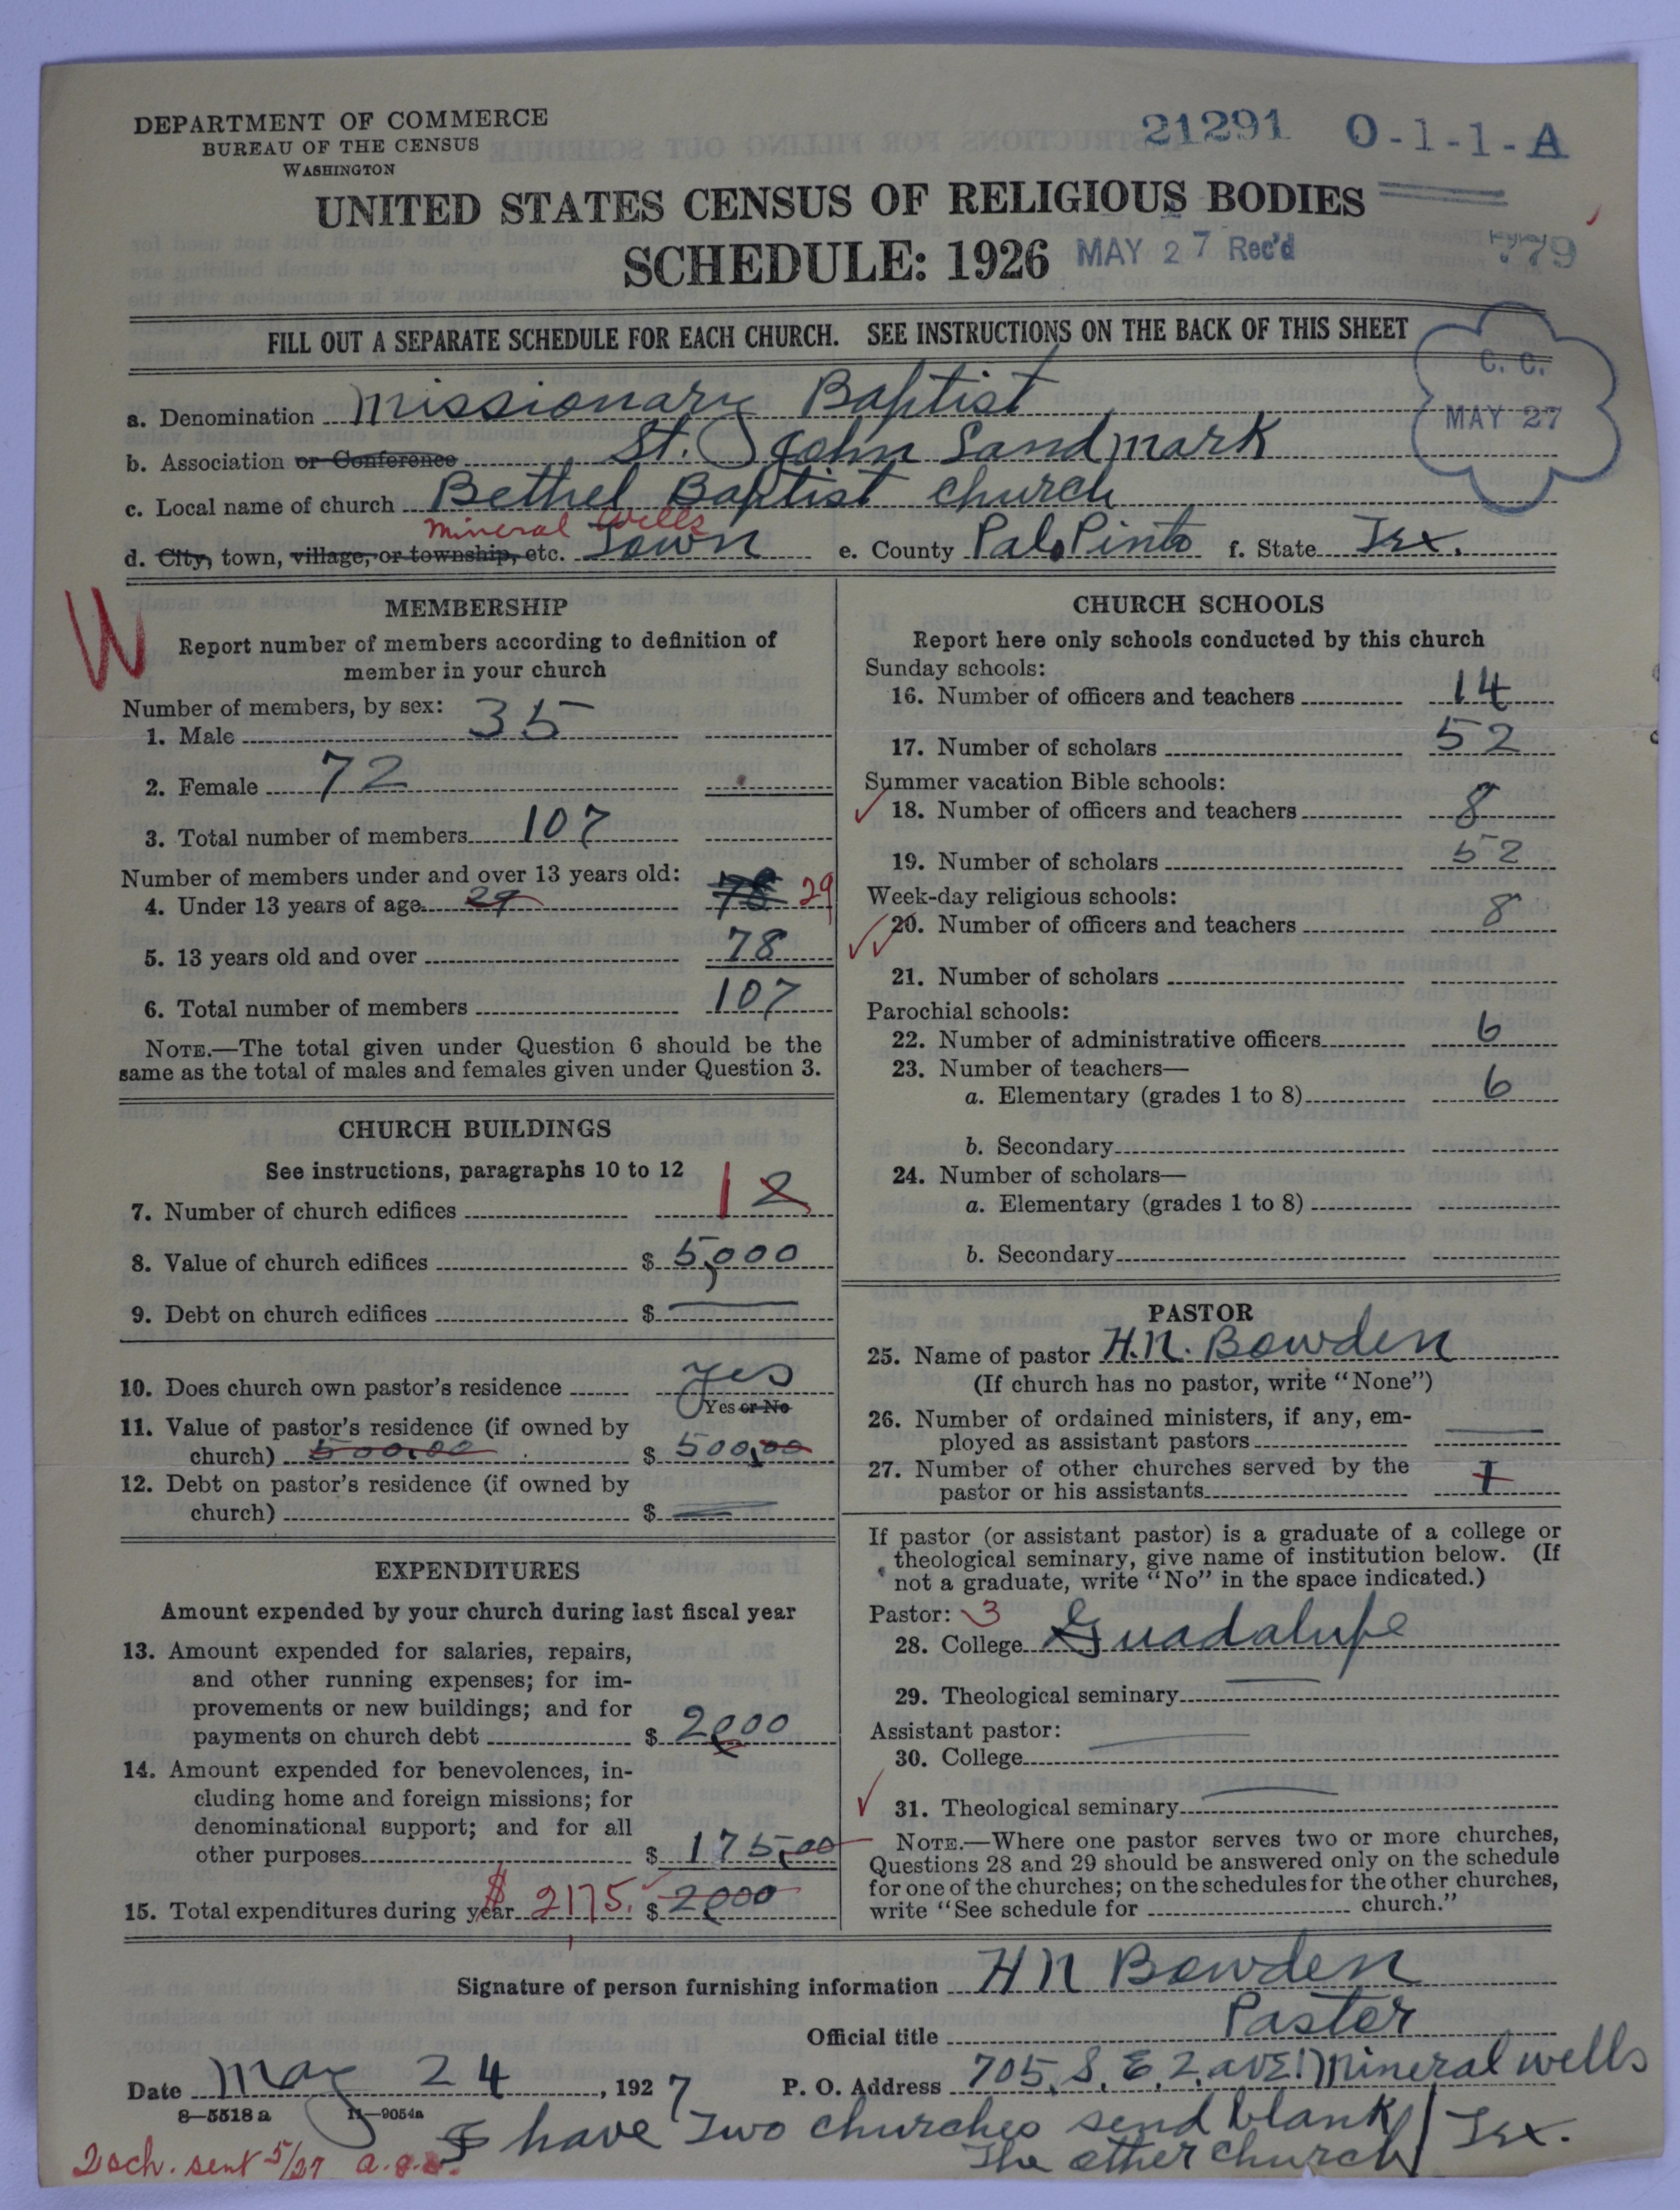 DEPARTMENT OF COMMERCE
BUREAU OF THE CENSUS
WASHINGTON
21291 O-1-1-A
UNITED STATES CENSUS OF RELIGIOUS BODIES
SCHEDULE: 1926 MAY 27 Rec'd 779
FILL OUT A SEPARATE SCHEDULE FOR EACH CHURCH. SEE INSTRUCTIONS ON THE BACK OF THIS SHEET
C. C.
MAY 27
a. Denomination Missionary Baptist
b. Association or Conference St. John Landmark
c. Local name of church Bethel Baptist church
Mineral Wells
d. City, town, village, or township, etc. Town e. County Palo Pinto f. State Tex.
W
MEMBERSHIP
Report number of members according to definition of
member in your church
Number of members, by sex:
1. Male 35
2. Female 72
3. Total number of members 107
Number of members under and over 13 years old:
4. Under 13 years of age 29 78 29
5. 13 years old and over 78
6. Total number of members 107
NOTE.—The total given under Question 6 should be the
same as the total of males and females given under Question 3.
CHURCH BUILDINGS
See instructions, paragraphs 10 to 12
7. Number of church edifices 1 2
8. Value of church edifices $ 5,000
9. Debt on church edifices $
10. Does church own pastor's residence yes
Yes or No
11. Value of pastor's residence (if owned by
church) 500.00 $ 500.00
12. Debt on pastor's residence (if owned by
church) $
EXPENDITURES
Amount expended by your church during last fiscal year
13. Amount expended for salaries, repairs,
and other running expenses; for im-
provements or new buildings; and for
payments on church debt $ 2000
14. Amount expended for benevolences, in-
cluding home and foreign missions; for
denominational support; and for all
other purposes $ 175.00
15. Total expenditures during year $ 2175. $ 2000
CHURCH SCHOOLS
Report here only schools conducted by this church
Sunday schools:
16. Number of officers and teachers 14
17. Number of scholars 52
Summer vacation Bible schools:
18. Number of officers and teachers 8
19. Number of scholars 52
Week-day religious schools:
20. Number of officers and teachers 8
21. Number of scholars
Parochial schools:
22. Number of administrative officers 6
23. Number of teachers—
a. Elementary (grades 1 to 8) 6
b. Secondary
24. Number of scholars—
a. Elementary (grades 1 to 8)
b. Secondary
PASTOR
25. Name of pastor H.N. Bowden
(If church has no pastor, write "None")
26. Number of ordained ministers, if any, em-
ployed as assistant pastors
27. Number of other churches served by the
pastor or his assistants 1
If pastor (or assistant pastor) is a graduate of a college or
theological seminary, give name of institution below. (If
not a graduate, write "No" in the space indicated.)
Pastor: 3
28. College Guadalupe
29. Theological seminary
Assistant pastor:
30. College
31. Theological seminary
NOTE.—Where one pastor serves two or more churches,
Questions 28 and 29 should be answered only on the schedule
for one of the churches; on the schedules for the other churches,
write "See schedule for church."
Signature of person furnishing information H N Bowden
Official title Pastor
Date May 24, 1927 P. O. Address 705, S, E, 2, avE! Mineral wells
Tex.
8—5518a 11—9054a
I have Two churches send blank
The other church
2 sch. sent 5/27